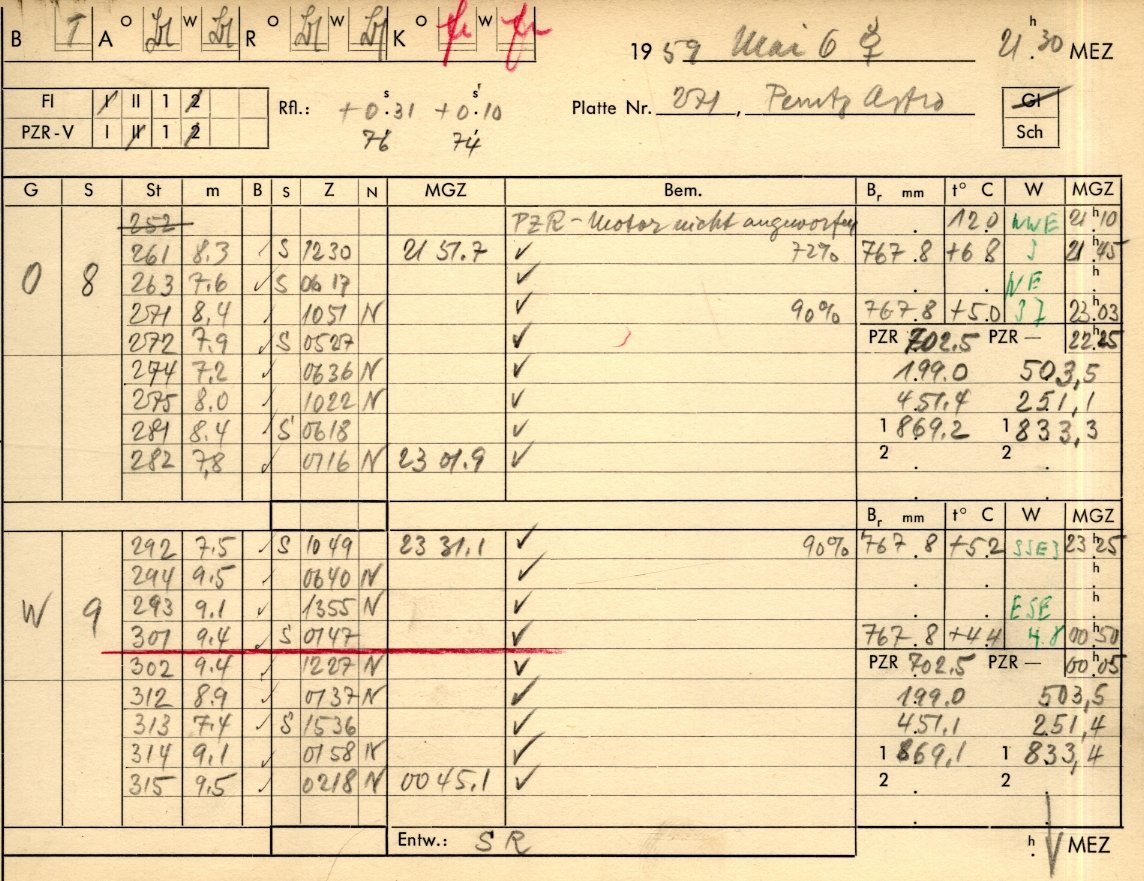 B T A O W R O W K O fr W fr 1959 Mai 6 ☿ 21 h 30 MEZ
FI I II 1 2 Rfl.: +0 s 31 +0 s 10 Platte Nr. 271, Perutz Astro GI
PZR-V I II 1 2 76 74 Sch
G S St m B S Z N MGZ Bem. Br mm t° C W MGZ
252 PZR-Motor nicht angeworfen 12.0 NWE 21 h 10
261 8.3 ✓ S 1230 21 51.7 ✓ 72% 767.8 +6.8 21 h 45
O 8 263 7.6 ✓ S 0617 ✓ . . NE h
271 8,4 ✓ 1051 N ✓ 90% 767.8 +5.0 23 h 03
272 7.9 ✓ S 0527 ✓ PZR 702.5 PZR — 22 h 25
274 7.2 ✓ 0636 N ✓ 199.0 503,5
275 8.0 ✓ 1022 N ✓ 451.4 251,1
281 8.4 ✓ S 0618 ✓ 1 869.2 1 833,3
282 7,8 ✓ 0716 N 23 01.9 ✓ 2 . 2 .
Br mm t° C W MGZ
292 7.5 ✓ S 1049 23 31.1 ✓ 90% 767.8 +5.2 SSE3 23 h 25
294 9.5 ✓ 0640 N ✓ . . h
W 9 293 9.1 ✓ 1355 N ✓ . . ESE h
301 9.4 ✓ S 0147 ✓ 767.8 +4.4 4.8 00 h 50
302 9.4 ✓ 1227 N ✓ PZR 702.5 PZR — 00 h 05
312 8.9 ✓ 0737 N ✓ 199.0 503,5
313 7.4 ✓ S 1536 ✓ 451,1 251,4
314 9.1 ✓ 0158 N ✓ 1 869,1 1 833,4
315 9.5 ✓ 0218 N 00 45.1 ✓ 2 . 2 .
Entw.: SR h MEZ